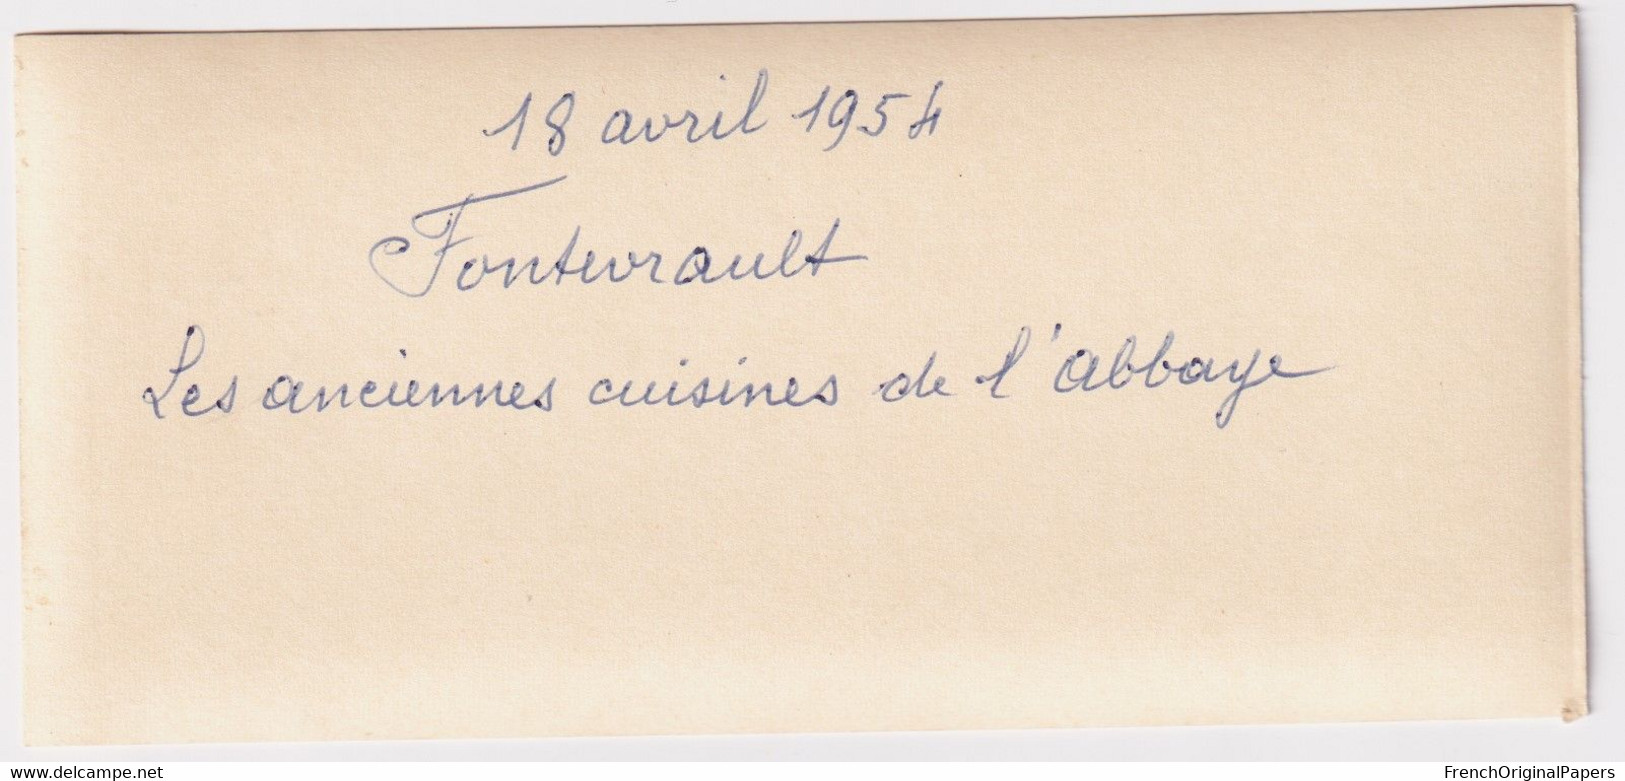 18 avril 1954
Fontevrault
Les anciennes cuisines de l'abbaye
www.delcampe.net
FrenchOriginalPapers